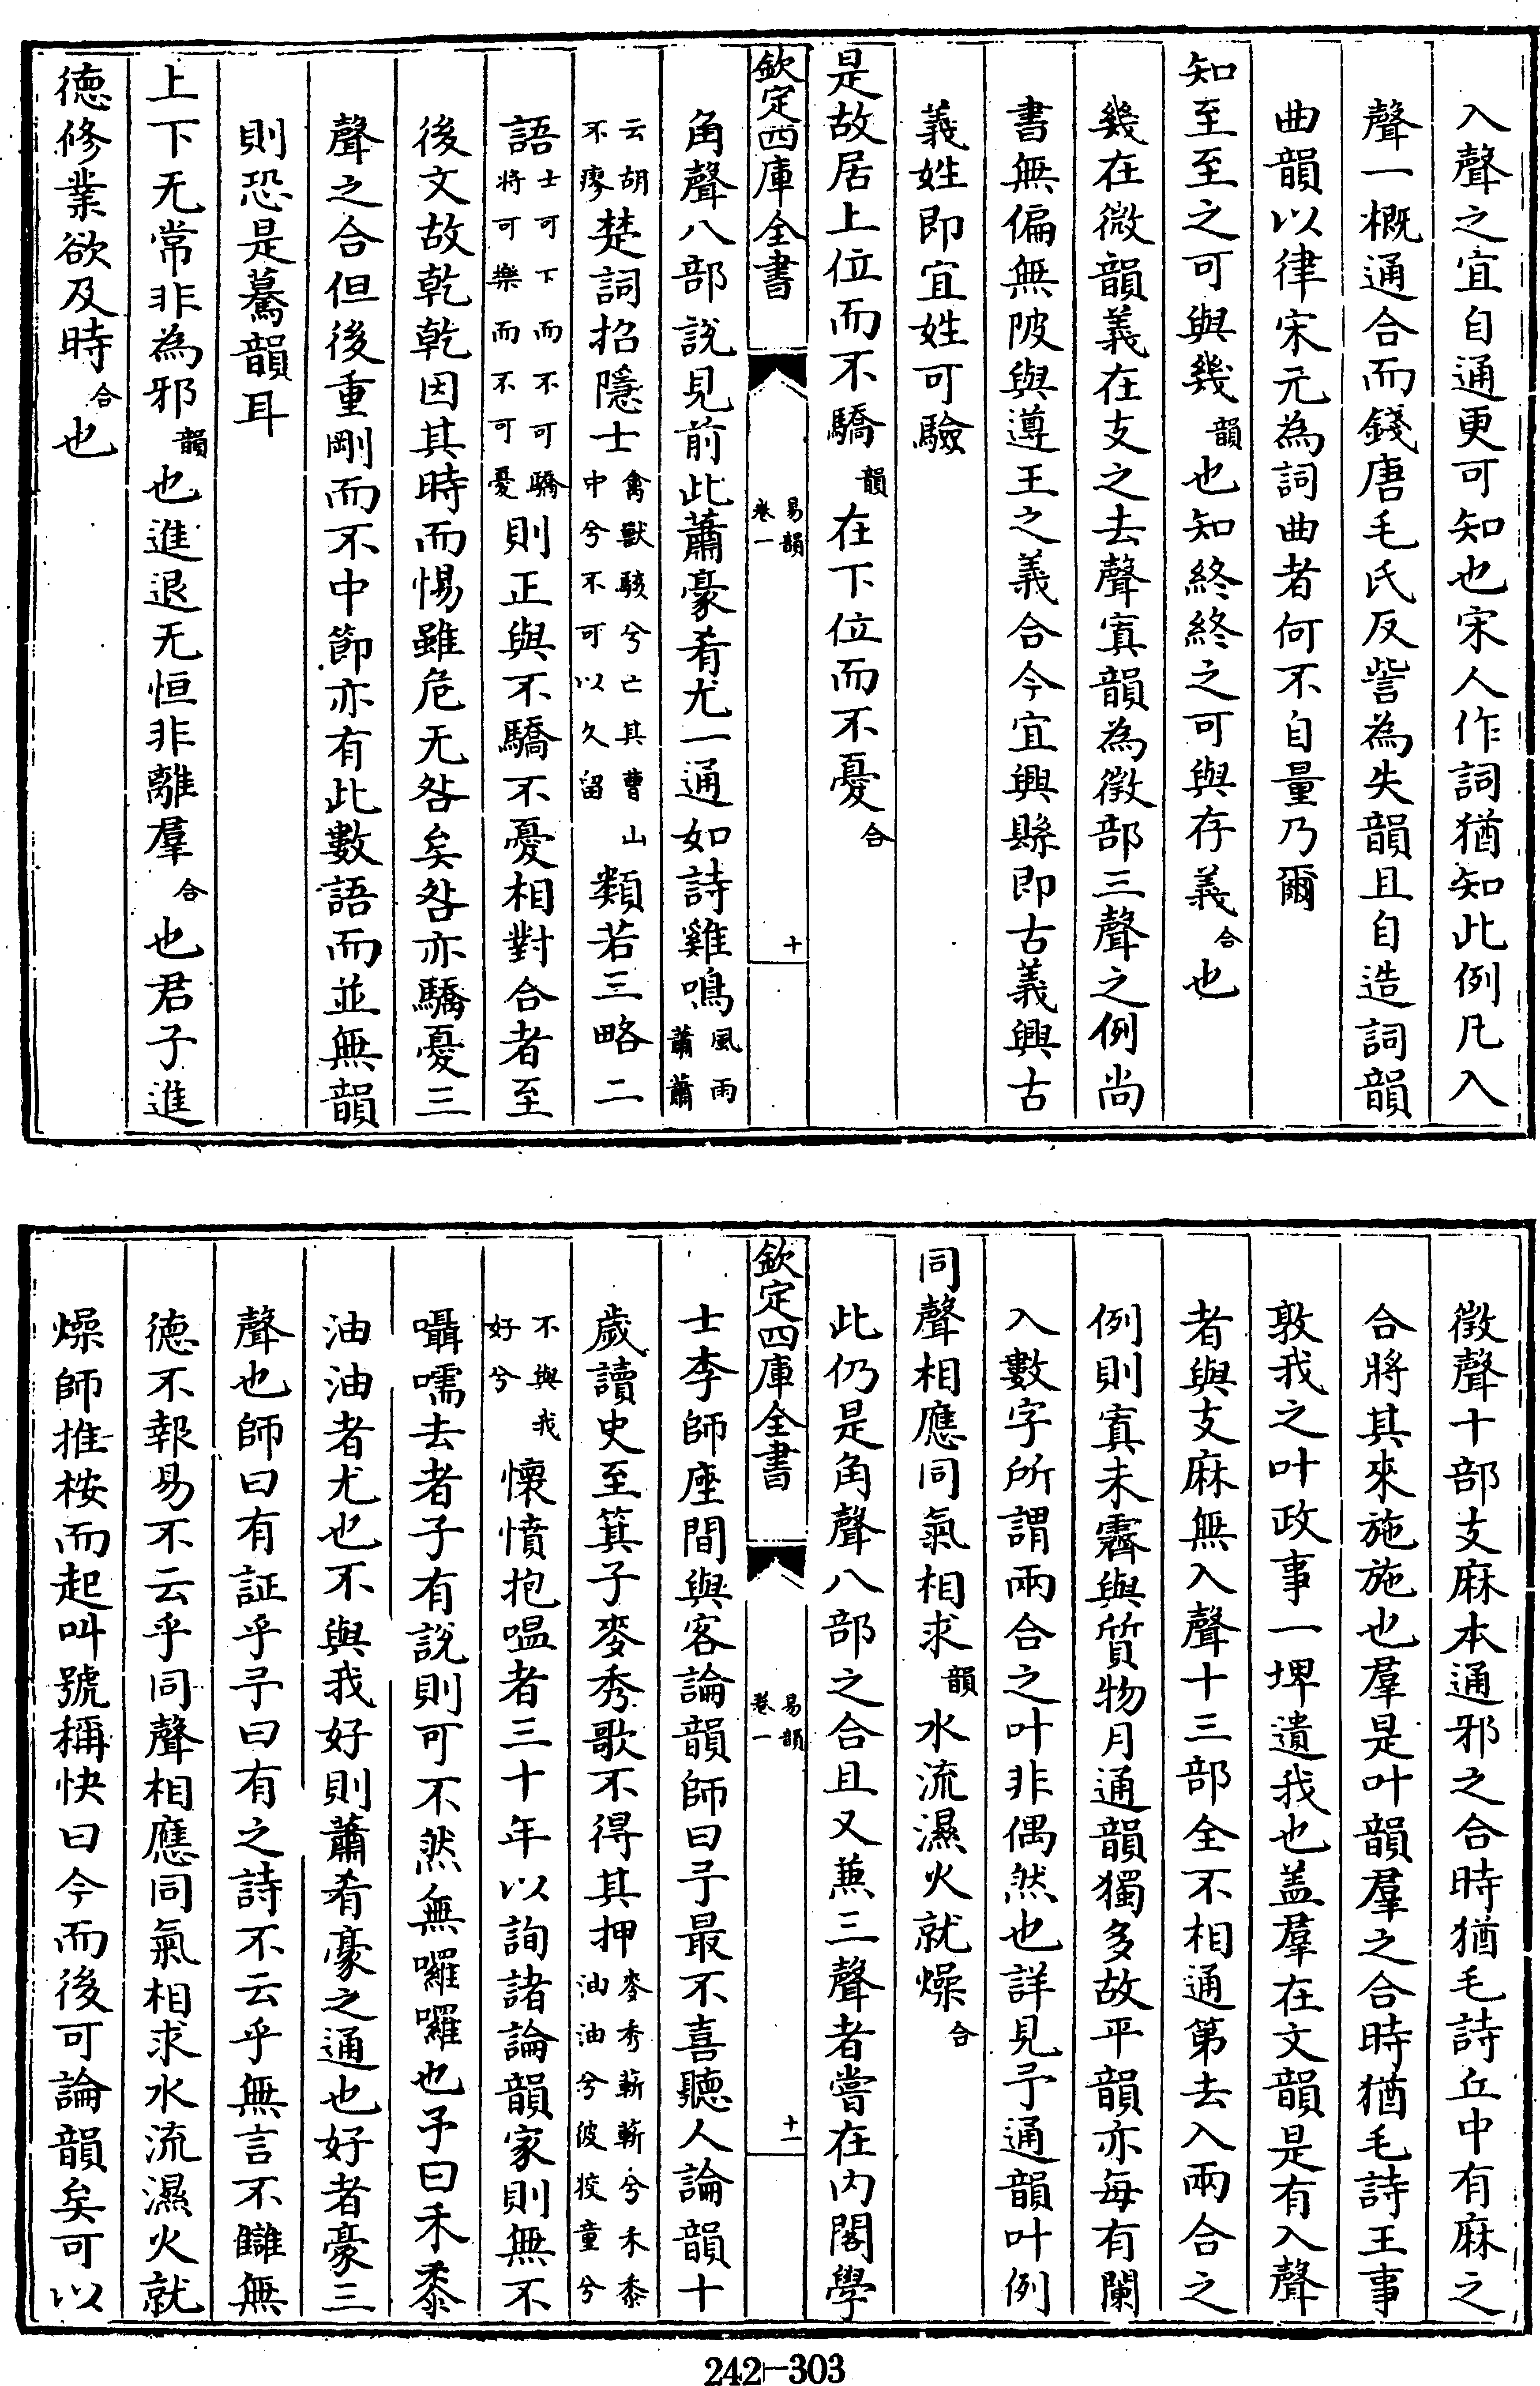 入聲之宜自通更可知也宋人作詞猶知此例凡入
聲一概通合而錢唐毛氏反訾為失韻且自造詞韻
曲韻以律宋元為詞曲者何不自量乃爾
知至至之可與幾韻也知終終之可與存義合也
幾在微韻義在支之去聲寘韻為徵部三聲之例尚
書無偏無陂與遵王之義合今宜興縣即古義興古
義姓即宜姓可驗
是故居上位而不驕韻在下位而不憂合
欽定四庫全書
易韻
卷一
十
角聲八部說見前此蕭豪肴尤一通如詩雞鳴風雨蕭蕭
云胡不瘳楚詞招隱士禽獸駭兮亡其曹山中兮不可以久留類若三略二
語士可下而不可驕將可樂而不可憂則正與不驕不憂相對合者至
後文故乾乾因其時而惕雖危无咎矣咎亦驕憂三
聲之合但後重剛而不中節亦有此數語而並無韻
則恐是驀韻耳
上下无常非為邪韻也進退无恒非離羣合也君子進
德修業欲及時合也
徵聲十部支麻本通邪之合時猶毛詩丘中有麻之
合將其來施施也羣是叶韻羣之合時猶毛詩王事
敦我之叶政事一埤遺我也盖羣在文韻是有入聲
者與支麻無入聲十三部全不相通第去入兩合之
例則寘未霽與質物月通韻獨多故平韻亦每有闌
入數字所謂兩合之叶非偶然也詳見予通韻叶例
同聲相應同氣相求韻水流濕火就燥合
此仍是角聲八部之合且又兼三聲者嘗在內閣學
欽定四庫全書
易韻
卷一
十一
士李師座間與客論韻師曰予最不喜聽人論韻十
歲讀史至箕子麥秀歌不得其押麥秀蔪蔪兮禾黍油油兮彼狡童兮
不與我好兮懷憤抱嗢者三十年以詢諸論韻家則無不
囁嚅去者子有說則可不然無囉囉也予曰禾黍
油油者尤也不與我好則蕭肴豪之通也好者豪三
聲也師曰有証乎予曰有之詩不云乎無言不讎無
德不報易不云乎同聲相應同氣相求水流濕火就
燥師推桉而起叫號稱快曰今而後可論韻矣可以
242-303